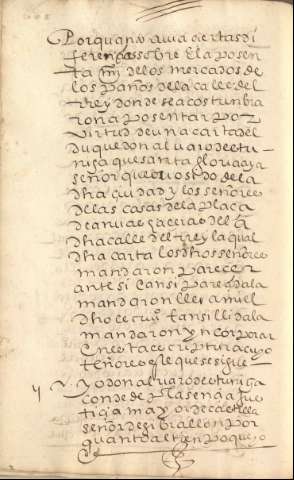 Por quanto avia ciertas di
ferençias sobre el aposen
ta mj de los mercados de
los paños de la calle del
rrey donde se acostunbra
ron aposentar por
virtud de una carta del
duque don alvaro destu
niga que santa gloria aya
señor que de la
dha ciudad y los señores
de las casas de la plaça
de la
dha calle del rrey la qual
dha carta los dhos señores
mandaron parecer
ante si e ansi pareçio la
mandaron leer
dho e ansilli da la
mandaron yncorporar
en esta escriptura cuyo
tenor es este que se sigue
yo don alvaro destuniga
conde de plasençia jus
tiçia mayor de castilla
señor de gibralleon por
quanto al tienpo que yo